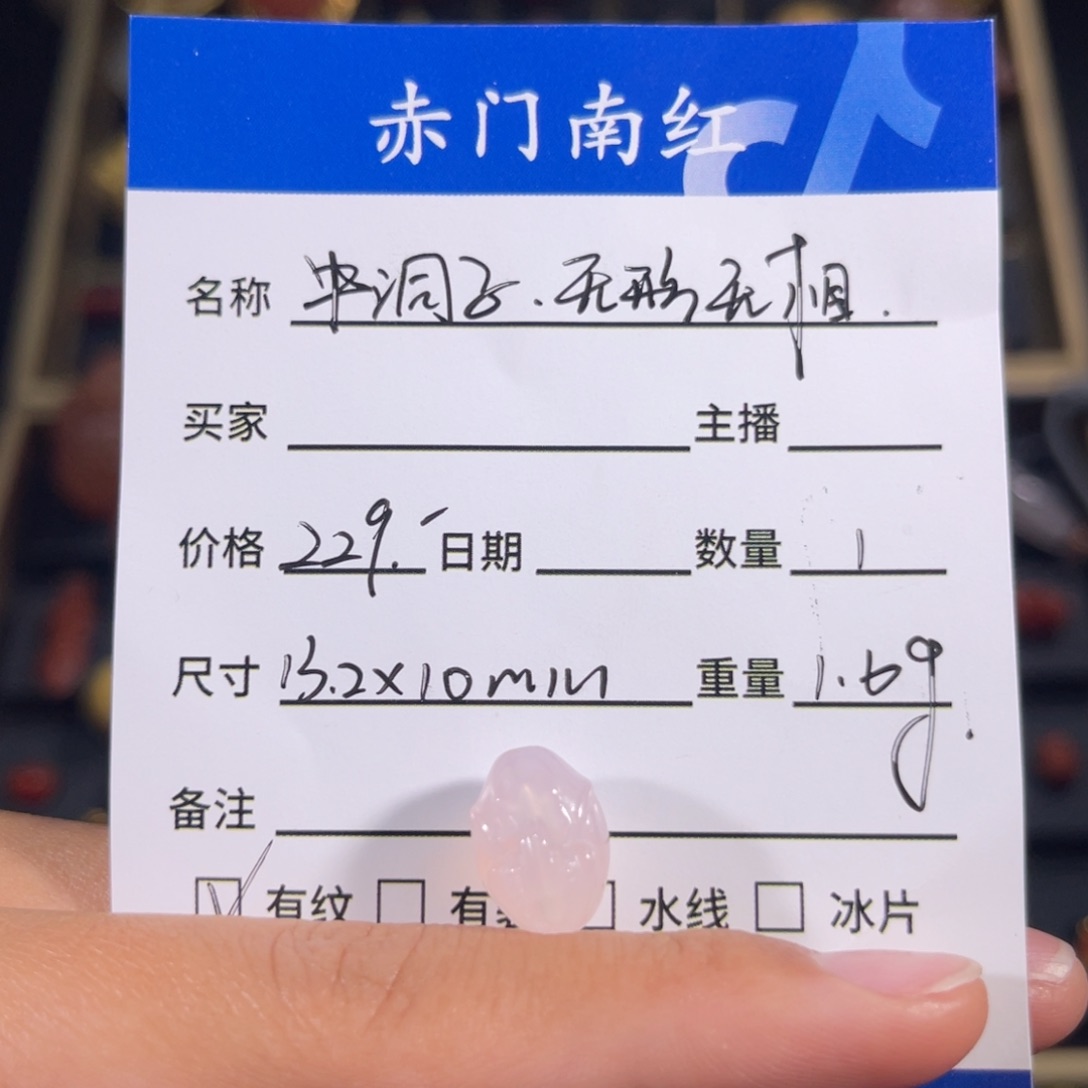 赤门南红
名称 半洞子.无形无相.
买家 主播
价格 229.- 日期 数量 1
尺寸 13.2×10mm 重量 1.6g
备注
☑ 有纹 □ 有 □ 水线 □ 冰片